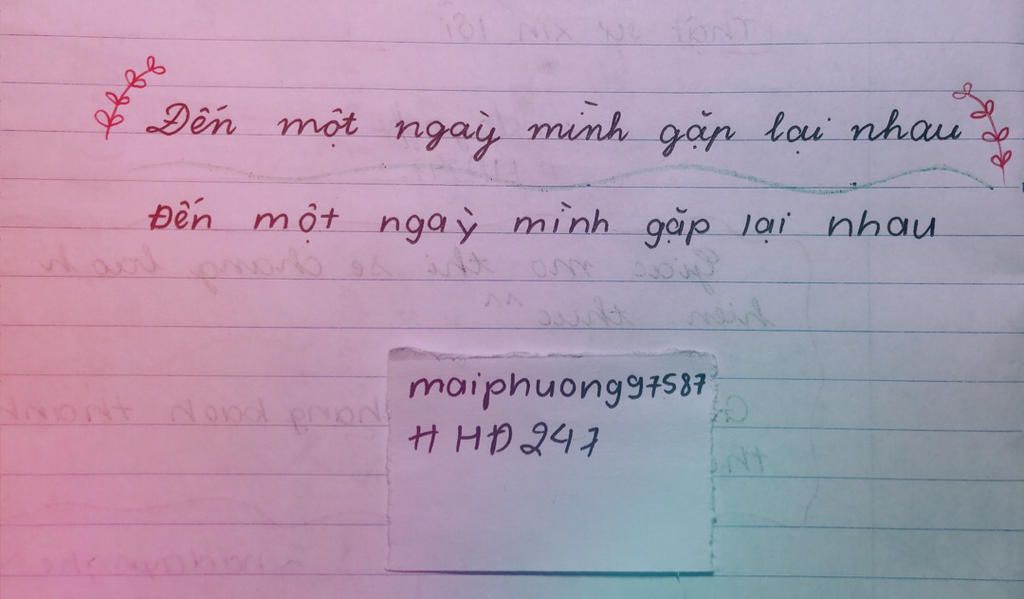 Đến một ngaỳ mình gặp lại nhau
Đến một ngaỳ mình gặp lại nhau
maiphuong97587
HHĐ247